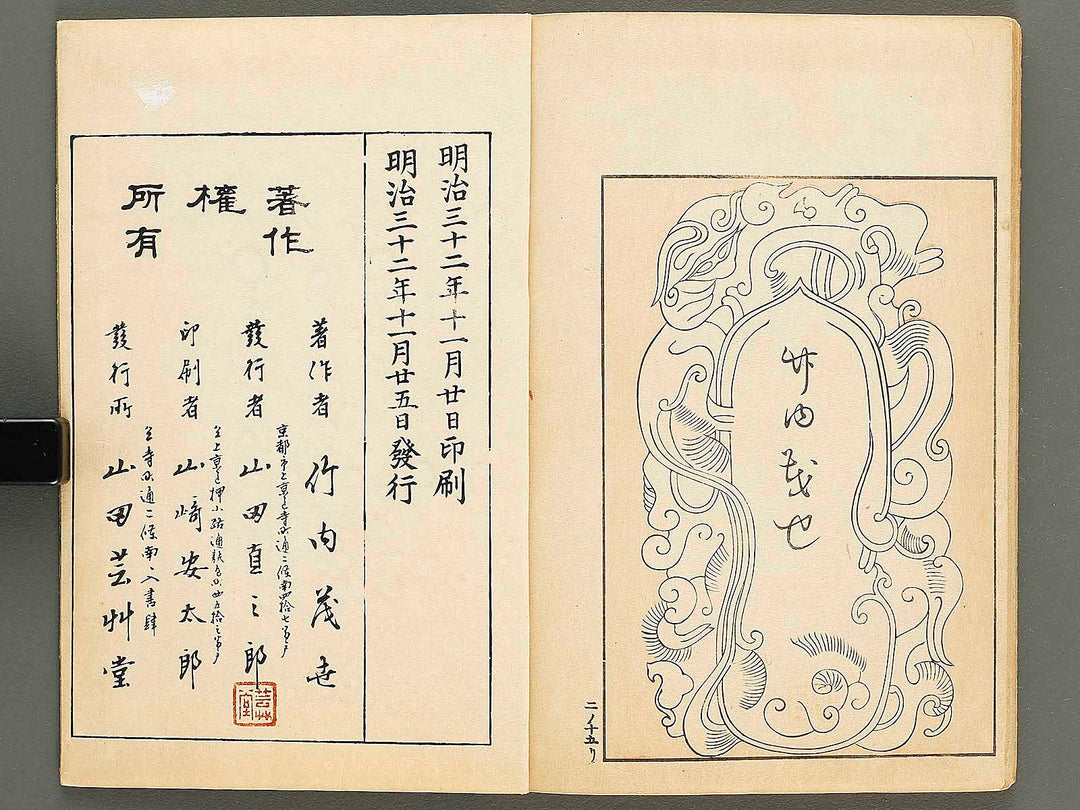 竹内茂也
二ノ十五ウ
明治三十二年十一月廿日印刷
明治三十二年十一月廿五日發行
著作
權
所有
著作者 竹内茂世
京都市上京區寺町通二條南四拾七番戸
發行者 山田直三郎
仝上京區押小路通
印刷者 山﨑安太郎
仝寺町通二條南ヘ入書肆
發行所 山田芸艸堂
芸艸堂